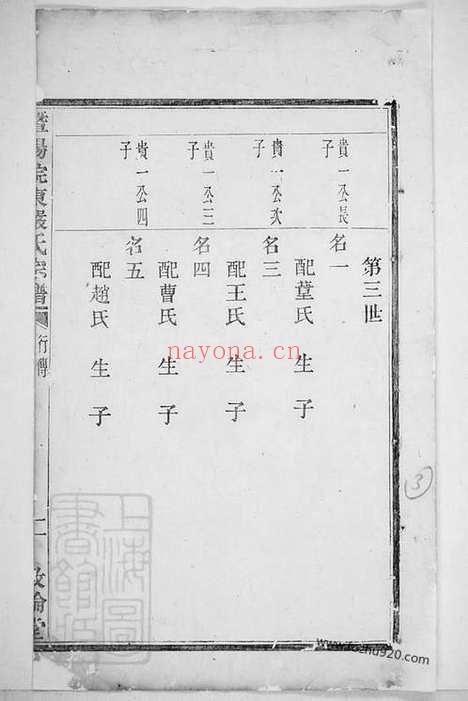 第三世
貴一公長子
名一
配董氏 生子
貴一公次子
名三
配王氏 生子
貴一公三子
名四
配曹氏 生子
貴一公四子
名五
配趙氏 生子
暨陽院東嚴氏宗譜 行傳 二
上海圖書館藏
nayona.cn
3
www.fozhu920.com